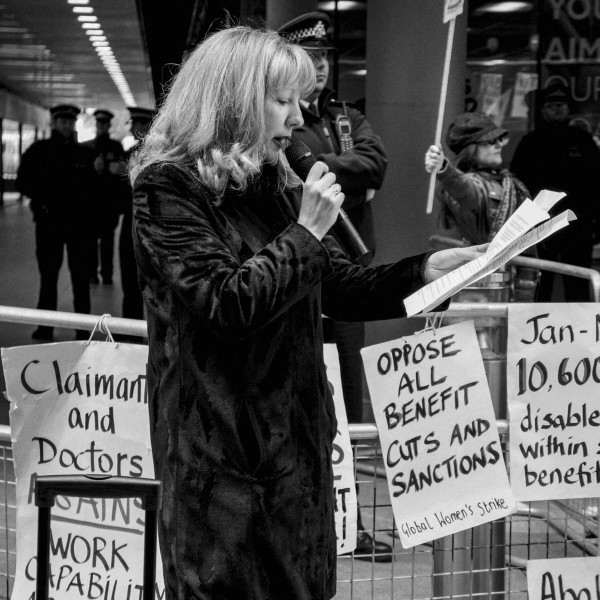 YOU
AIM
OUR
Claimant
and
Doctors
AGAINS
WORK
CAPABILI
OPPOSE
ALL
BENEFIT
CUTS AND
SANCTIONS
Global Women's Strike
Jan-
10,600
disable
within
benefit
Abol